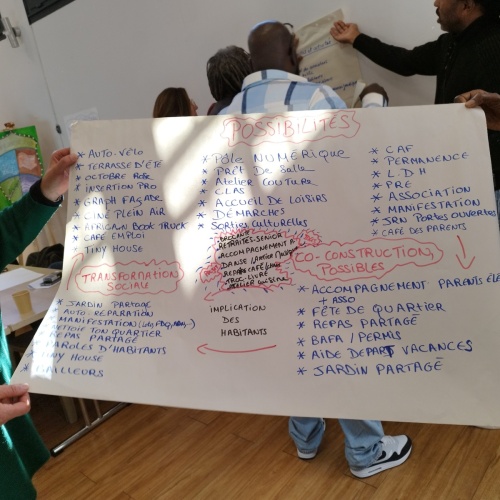 POSSIBILITÉS
* AUTO-VÉLO
* TERRASSE D'ÉTÉ
* OCTOBRE ROSE
* INSERTION PRO
* GRAPH FAÇADE
* CINÉ PLEIN AIR
* AFRICAIN BOOK TRUCK
* CAFÉ EMPLOI
* TINY HOUSE
* PÔLE NUMÉRIQUE
* PRÊT DE SALLE
* ATELIER COUTURE
* CLAS
* ACCUEIL DE LOISIRS
* DÉMARCHES
* SORTIES CULTURELLES
* CAF
* PERMANENCE
* L.D.H
* PRE
* ASSOCIATION
* MANIFESTATION
* JRN PORTES OUVERTES
* CAFÉ DES PARENTS
RETRAITES-SENIOR
ACCOMPAGNEMENT À
DANSE
TRANSFORMATION
SOCIALE
CO-CONSTRUCTION,
POSSIBLES
IMPLICATION
DES
HABITANTS
JARDIN PARTAGÉ
AUTO-RÉPARATION
MANIFESTATION
TON QUARTIER
PAS PARTAGÉ
PAROLES D'HABITANTS
TINY HOUSE
* ACCOMPAGNEMENT PARENTS
+ ASSO
* FÊTE DE QUARTIER
* REPAS PARTAGÉ
* BAFA / PERMIS
* AIDE DEPART VACANCES
* JARDIN PARTAGÉ